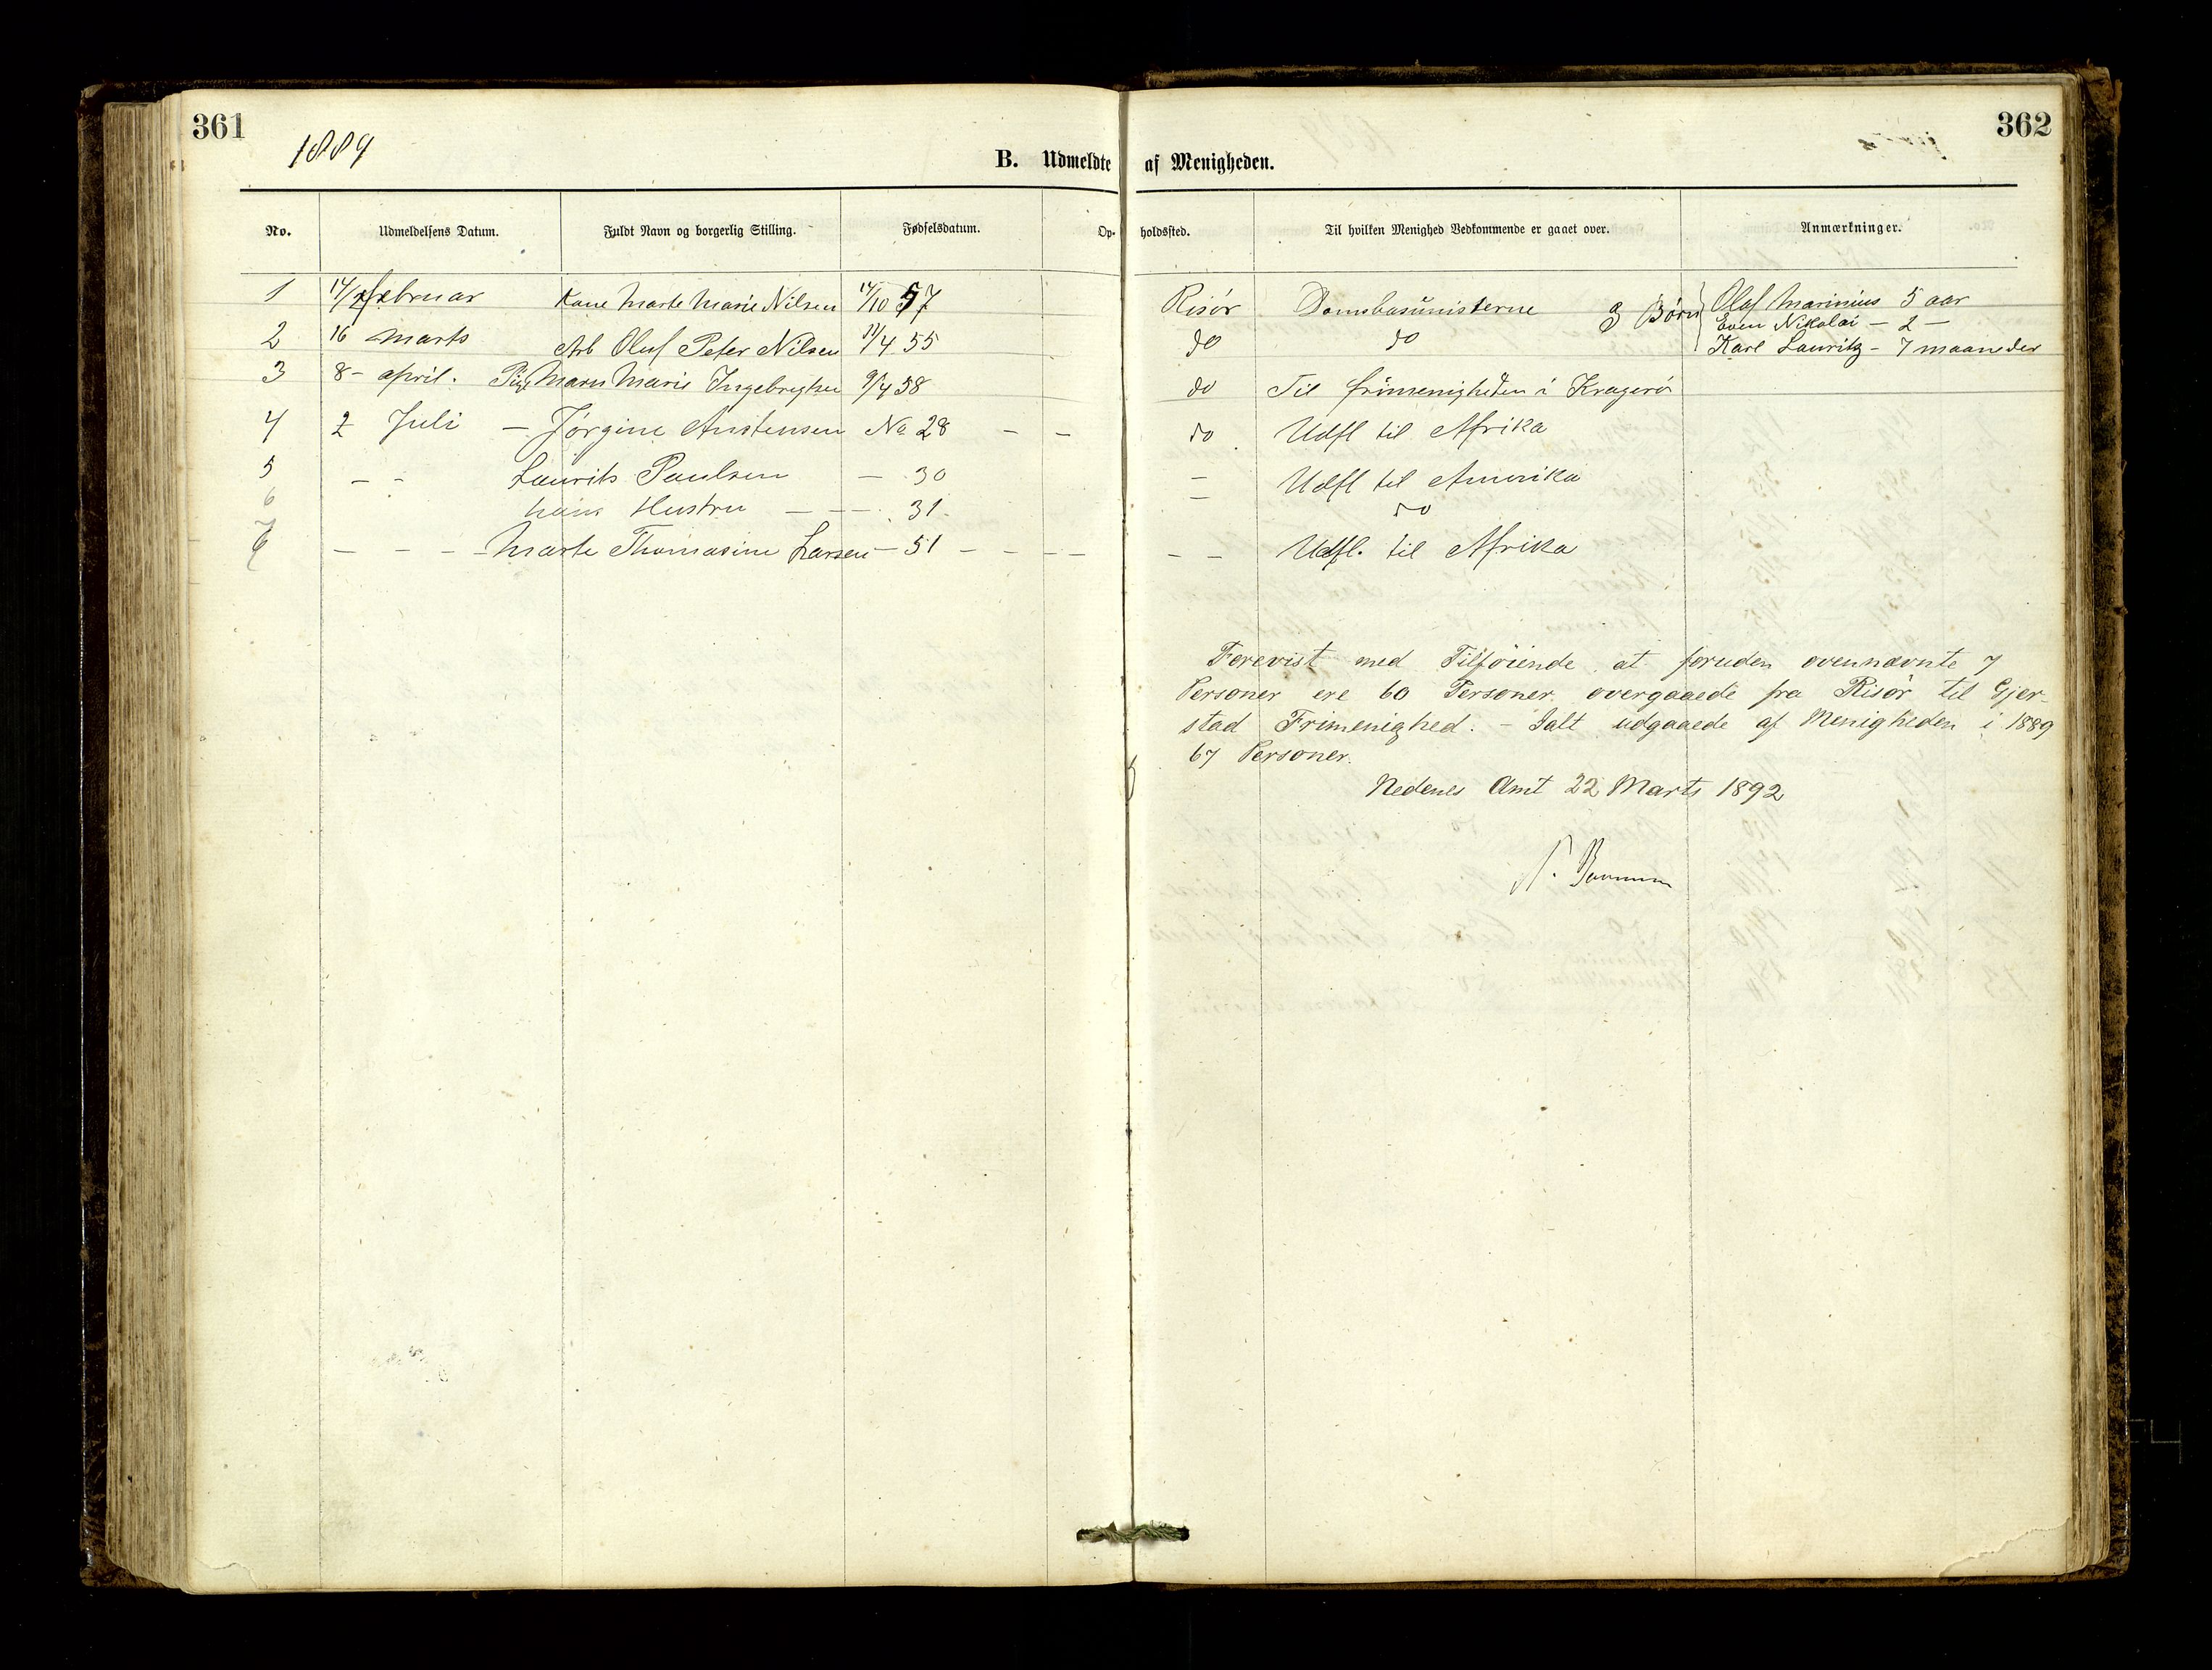 361
362
1889
B. Udmeldte af Menigheden.
No. Udmeldelsens Datum. Fuldt Navn og borgerlig Stilling. Fødselsdatum. Opholdssted. Til hvilken Menighed Vedkommende er gaaet over. Anmærkninger.
1 17/2 februar Kone Marte Marie Nilsen 14/10 57 Risör 3 Börn Olaf Marinius 5 aar
Even Nikolai - 2 -
2 16 Marts Arb Oluf Peter Nilsen 11/4 55 do do Karl Lauritz - 7 maaneder
3 8 - april. Pige Maren Marie Ingebrigtsen 9/4 58 do Til frimenigheden i Kragerö
4 2 Juli - Jörgine Anstensen No 28 - - do Udfl til Afrika
5 - - Laurits Paulsen - 30 - Udfl til Amerika
6 hans Hustru - - 31. - do
7 - - - - Marte Thomasine Larsen - 51 - - - - - - Udfl. til Afrika
Forevist med Tilföiende at foruden ovennævnte 7
Personer ere 60 Personer overgaaede fra Risör til Gjer-
stad Frimenighed. - Ialt udgaaede af Menigheden i 1889
67 Personer.
Nedenes Amt 22 Marts 1892